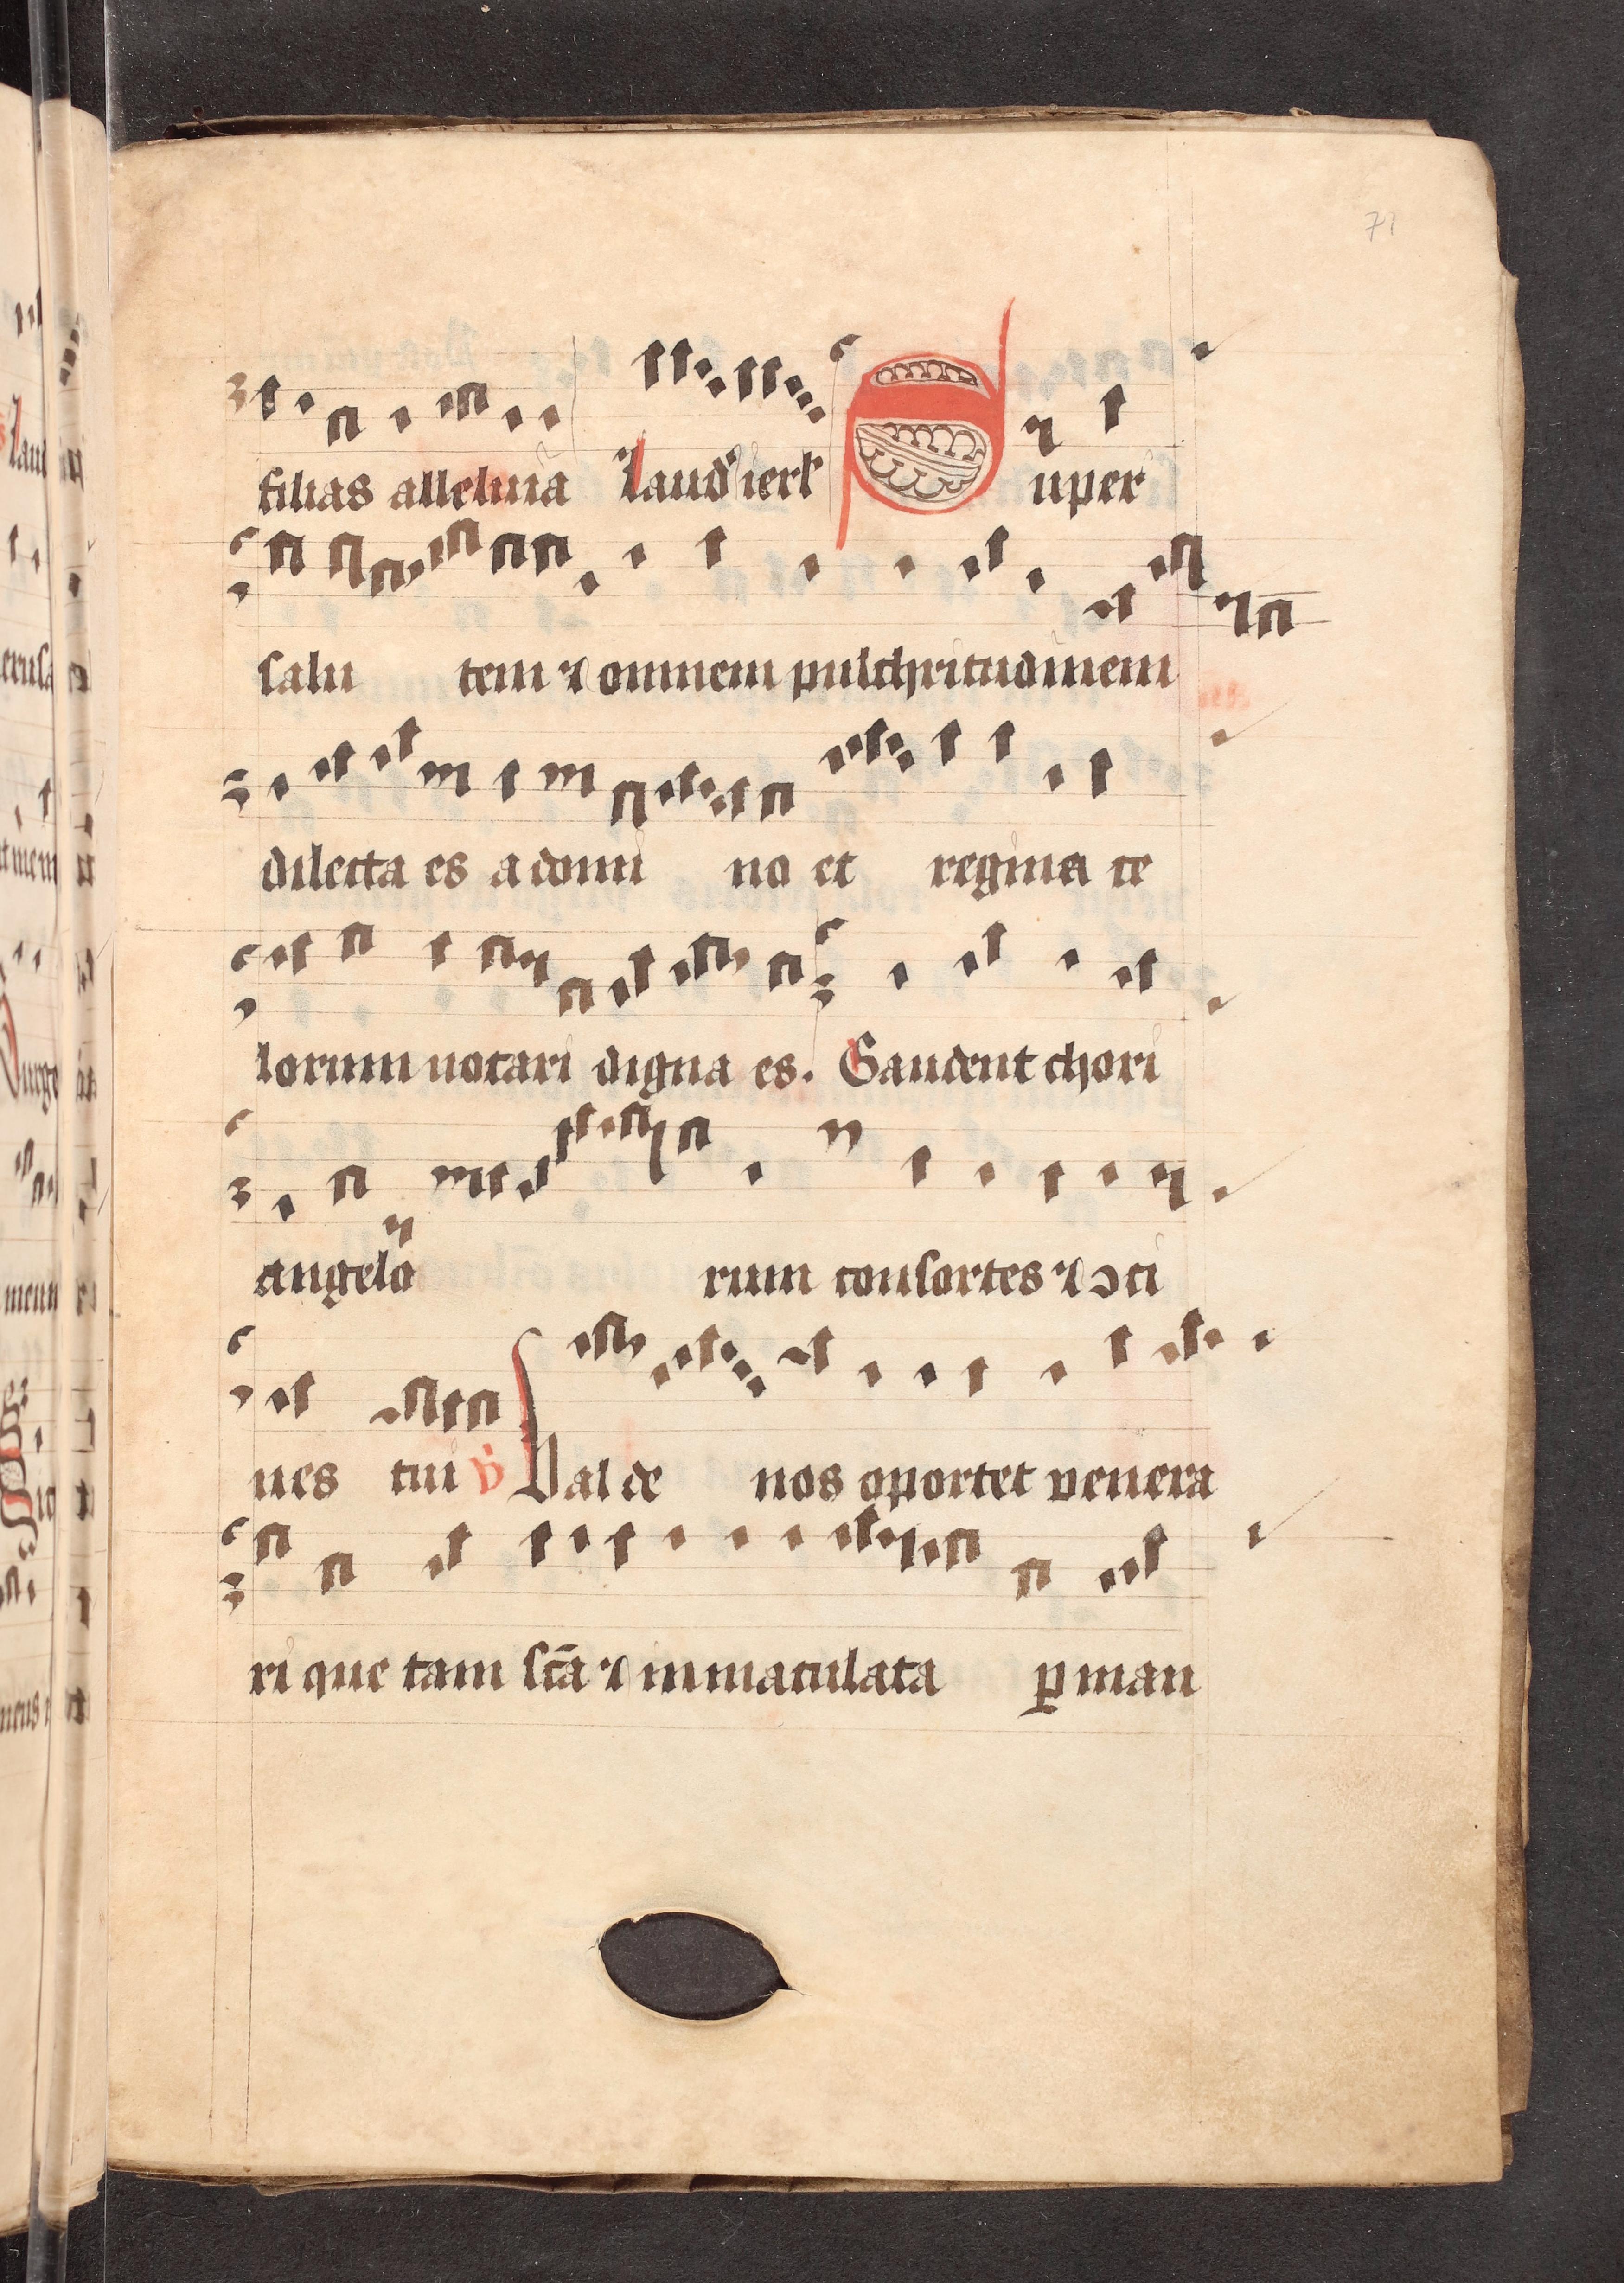 71
filias alleluia Laud ierl Super
salu tem ⁊ omnem pulchritudinem
dilecta es a domi no et regina ce
lorum uocari digna es. Gaudent chori
angelo rum consortes ⁊ ↄci
ues tui V Valde nos oportet venera
ri que tam scā ⁊ inmaculata ꝑman